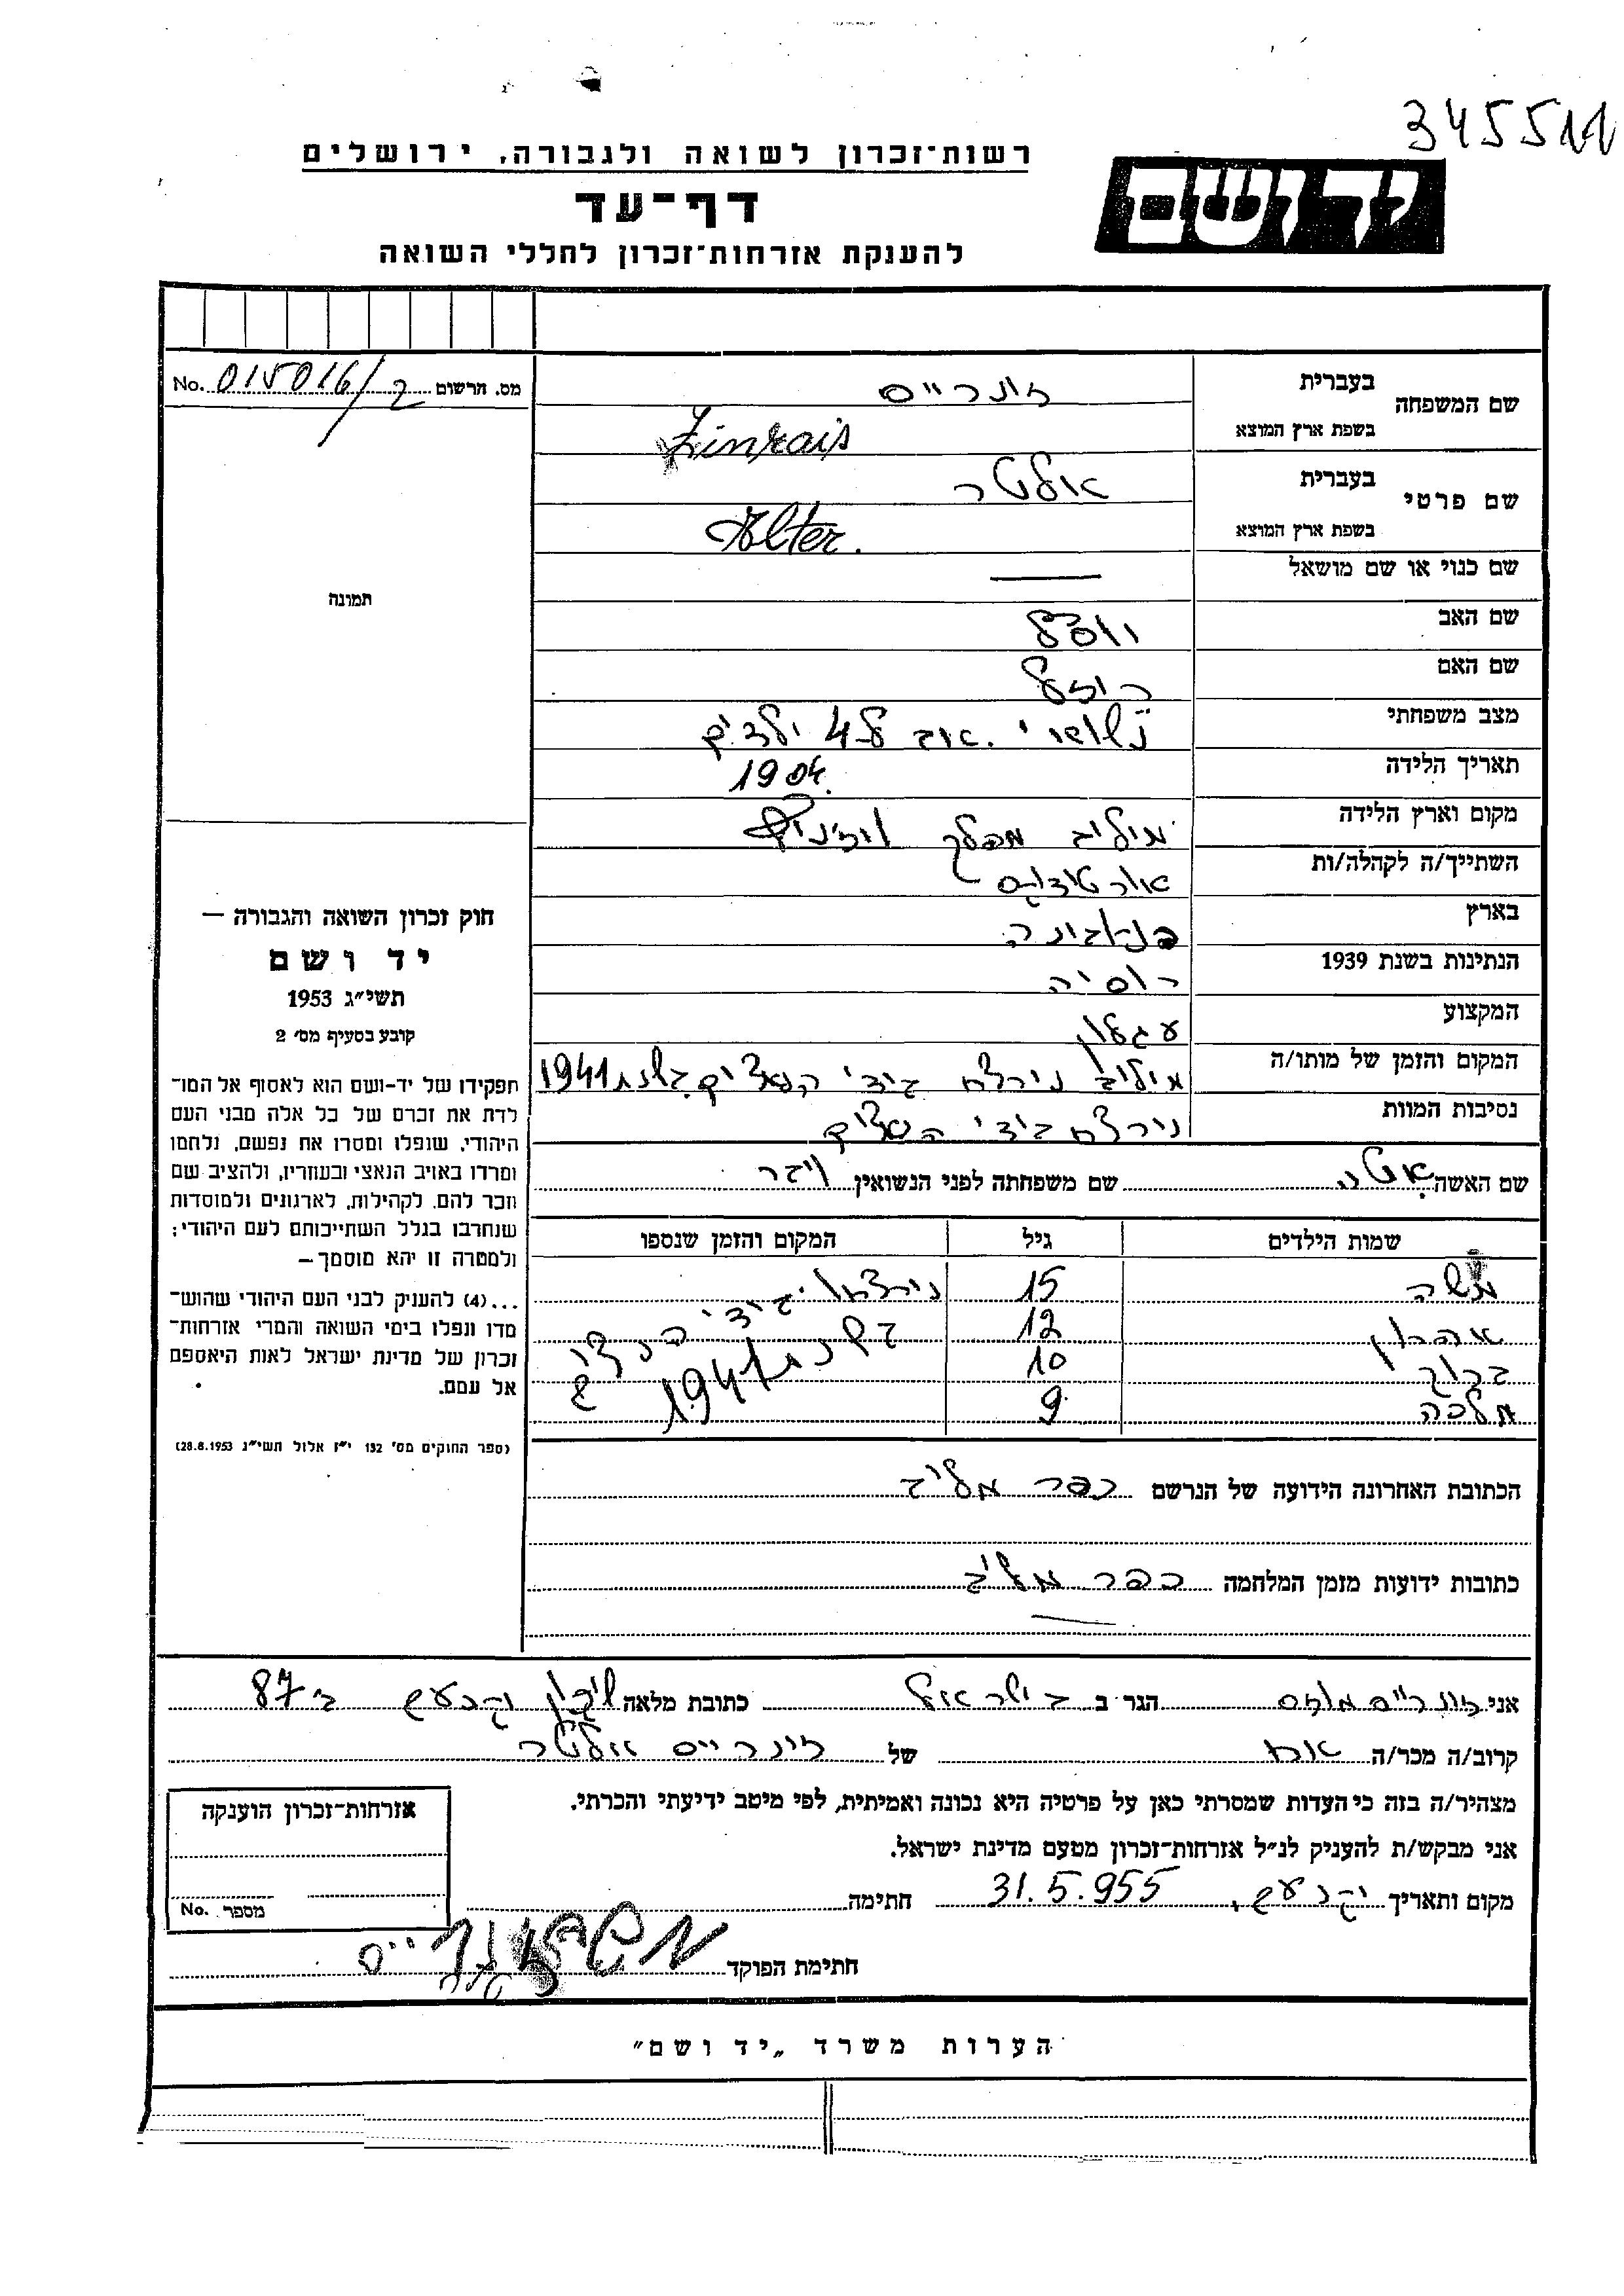 345511
רשות־זכרון לשואה ולגבורה, ירושלים
יד ושם
דף־עד
להענקת אזרחות־זכרון לחללי השואה
מס. הרשום 015016/2 No.
שם המשפחה
בעברית זונרייס
בשפת ארץ המוצא Zinrais
שם פרטי
בעברית אלטר
בשפת ארץ המוצא Alter.
שם כנוי או שם מושאל —
תמונה
שם האב
שם האם רוזל
מצב משפחתי נשואי אב ל-4 ילדים
תאריך הלידה 1904.
מקום וארץ הלידה מיליב מפלך
השתייך/ה לקהלה/ות אורטודוקס
בארץ
הנתינות בשנת 1939 רוסיה
המקצוע עגלון
המקום והזמן של מותו/ה מיליב נירצח בידי הנאצים בשנת 1941
נסיבות המוות נירצח בידי הנאצים
שם האשה שם משפחתה לפני הנשואין
שמות הילדים גיל המקום והזמן שנספו
משה 15 נירצחו בידי הנאצים
אהרון 12 בשנת 1941
ברוך 10
מלכה 9
הכתובת האחרונה הידועה של הנרשם כפר מליב
כתובות ידועות מזמן המלחמה כפר מליב
חוק זכרון השואה והגבורה —
יד ושם
תשי״ג 1953
קובע בסעיף מס׳ 2
תפקידו של יד-ושם הוא לאסוף אל המו־
לדת את זכרם של כל אלה מבני העם
היהודי, שנפלו ומסרו את נפשם, נלחמו
ומרדו באויב הנאצי ובעוזריו, ולהציב שם
וזכר להם, לקהילות, לארגונים ולמוסדות
שנחרבו בגלל השתייכותם לעם היהודי;
ולמטרה זו יהא מוסמך —
...(4) להעניק לבני העם היהודי שהוש־
מדו ונפלו בימי השואה והמרי אזרחות־
זכרון של מדינת ישראל לאות היאספם
אל עמם.
(ספר החוקים מס׳ 132 י״ז אלול תשי״ג 28.8.1953)
אני זונרייס הגר ב בישראל כתובת מלאה שיכון יקנעם ב׳ 87
קרוב/ה מכר/ה אח של זינרייס אלטר
מצהיר/ה בזה כי העדות שמסרתי כאן על פרטיה היא נכונה ואמיתית, לפי מיטב ידיעתי והכרתי.
אני מבקש/ת להעניק לנ״ל אזרחות־זכרון מטעם מדינת ישראל.
מקום ותאריך יקנעם, 31.5.955 חתימה
חתימת הפוקד
אזרחות־זכרון הוענקה
מספר No.
הערות משרד „יד ושם״